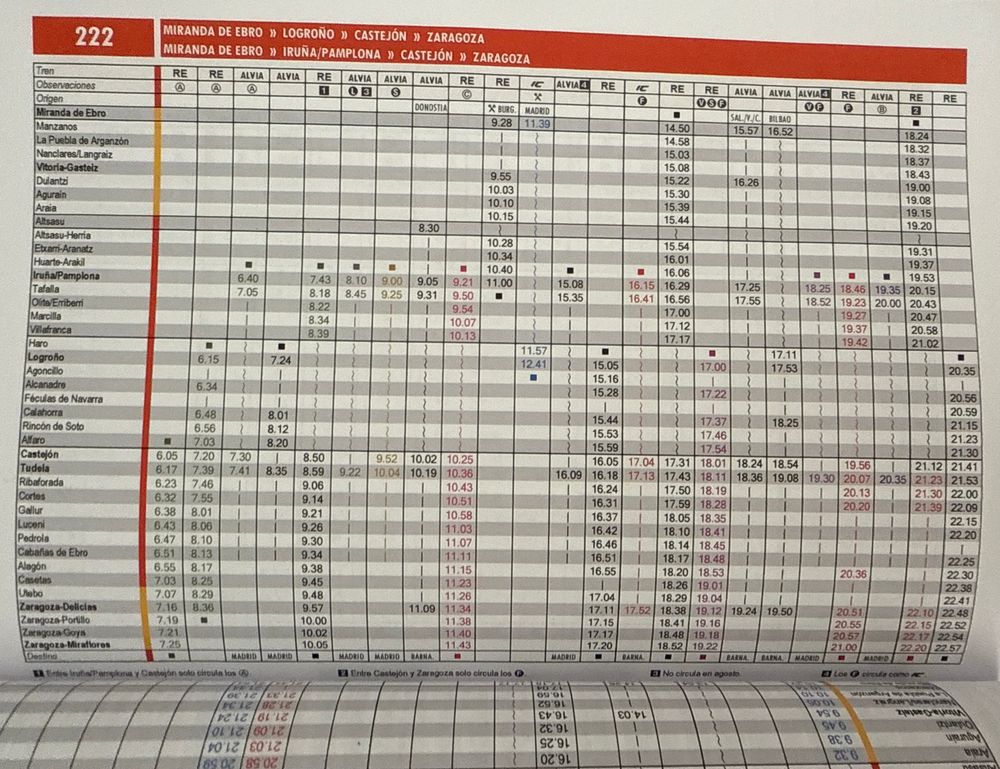 222
MIRANDA DE EBRO » LOGROÑO » CASTEJÓN » ZARAGOZA
MIRANDA DE EBRO » IRUÑA/PAMPLONA » CASTEJÓN » ZARAGOZA
Tren RE RE ALVIA ALVIA RE ALVIA ALVIA ALVIA RE RE IC ALVIA 4 RE IC RE RE ALVIA ALVIA ALVIA 4 RE ALVIA RE RE
Observaciones A A A 1 L 3 S C F V S F V F F B 2
Origen DONOSTIA BURG. MADRID SAL./V./C. BILBAO
Miranda de Ebro 9.28 11.39 14.50 15.57 16.52 18.24
Manzanos 14.58 18.32
La Puebla de Arganzón 15.03 18.37
Nanclares/Langraiz 15.08 18.43
Vitoria-Gasteiz 9.55 15.22 16.26 19.00
Dulantzi 10.03 15.30 19.08
Agurain 10.10 15.39 19.15
Araia 10.15 15.44 19.20
Altsasu 8.30
Altsasu-Herria 10.28 15.54 19.31
Etxarri-Aranatz 10.34 16.01 19.37
Huarte-Arakil 10.40 16.06 19.53
Iruña/Pamplona 6.40 7.43 8.10 9.00 9.05 9.21 11.00 15.08 16.15 16.29 17.25 18.25 18.46 19.35 20.15
Tafalla 7.05 8.18 8.45 9.25 9.31 9.50 15.35 16.41 16.56 17.55 18.52 19.23 20.00 20.43
Olite/Erriberri 8.22 9.54 17.00 19.27 20.47
Marcilla 8.34 10.07 17.12 19.37 20.58
Villafranca 8.39 10.13 17.17 19.42 21.02
Haro 11.57 17.11
Logroño 6.15 7.24 12.41 15.05 17.00 17.53 20.35
Agoncillo 15.16
Alcanadre 6.34 15.28 17.22 20.56
Féculas de Navarra 20.59
Calahorra 6.48 8.01 15.44 17.37 18.25 21.15
Rincón de Soto 6.56 8.12 15.53 17.46 21.23
Alfaro 7.03 8.20 15.59 17.54 21.30
Castejón 6.05 7.20 7.30 8.50 9.52 10.02 10.25 16.05 17.04 17.31 18.01 18.24 18.54 19.56 21.12 21.41
Tudela 6.17 7.39 7.41 8.35 8.59 9.22 10.04 10.19 10.36 16.09 16.18 17.13 17.43 18.11 18.36 19.08 19.30 20.07 20.35 21.23 21.53
Ribaforada 6.23 7.46 9.06 10.43 16.24 17.50 18.19 20.13 21.30 22.00
Cortes 6.32 7.55 9.14 10.51 16.31 17.59 18.28 20.20 21.39 22.09
Gallur 6.38 8.01 9.21 10.58 16.37 18.05 18.35 22.15
Luceni 6.43 8.06 9.26 11.03 16.42 18.10 18.41 22.20
Pedrola 6.47 8.10 9.30 11.07 16.46 18.14 18.45
Cabañas de Ebro 6.51 8.13 9.34 11.11 16.51 18.17 18.48 22.25
Alagón 6.55 8.17 9.38 11.15 16.55 18.20 18.53 20.36 22.30
Casetas 7.03 8.25 9.45 11.23 18.26 19.01 22.38
Utebo 7.07 8.29 9.48 11.26 17.04 18.29 19.04 22.41
Zaragoza-Delicias 7.16 8.36 9.57 11.09 11.34 17.11 17.52 18.38 19.12 19.24 19.50 20.51 22.10 22.48
Zaragoza-Portillo 7.19 10.00 11.38 17.15 18.41 19.16 20.55 22.15 22.52
Zaragoza-Goya 7.21 10.02 11.40 17.17 18.48 19.18 20.57 22.17 22.54
Zaragoza-Miraflores 7.25 10.05 11.43 17.20 18.52 19.22 21.00 22.20 22.57
Destino MADRID MADRID MADRID MADRID BARNA. MADRID BARNA. BARNA. BARNA. MADRID MADRID
1 Entre Iruña/Pamplona y Castejón solo circula los A 2 Entre Castejón y Zaragoza solo circula los F 3 No circula en agosto. 4 Los F circula como IC
21.39 21.33
21.34 21.28 16.59 10.05
21.24 21.19 16.52 9.54 Vitoria-Gasteiz
21.10 21.09 16.43 14.03 9.45 Dulantzi
21.04 21.03 16.32 9.38 Agurain
20.59 20.58 16.25 9.32 Araia
16.20